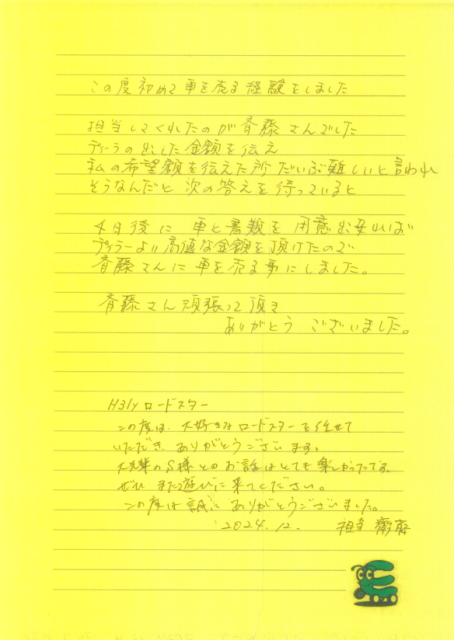 この度初めて車を売る経験をしました
担当してくれたのが斉藤さんでした
ディーラの出した金額を伝え
私の希望額を伝えた所だいぶ難しいと言われ
そうなんだと次の答えを待っていると
4日後に 車と書類を用意出来れば
ディラーより高値な金額を頂けたので
斉藤さんに車を売る事にしました。
斉藤さん頑張って頂き
ありがとう ございました。
H31y ロードスター
この度は、大好きなロードスターを任せて
いただき ありがとうございます。
大先輩のS様とのお話はとても楽しかったです。
ぜひ また遊びに来てください。
この度は誠に ありがとうございました。
2024.12. 担当 齋藤